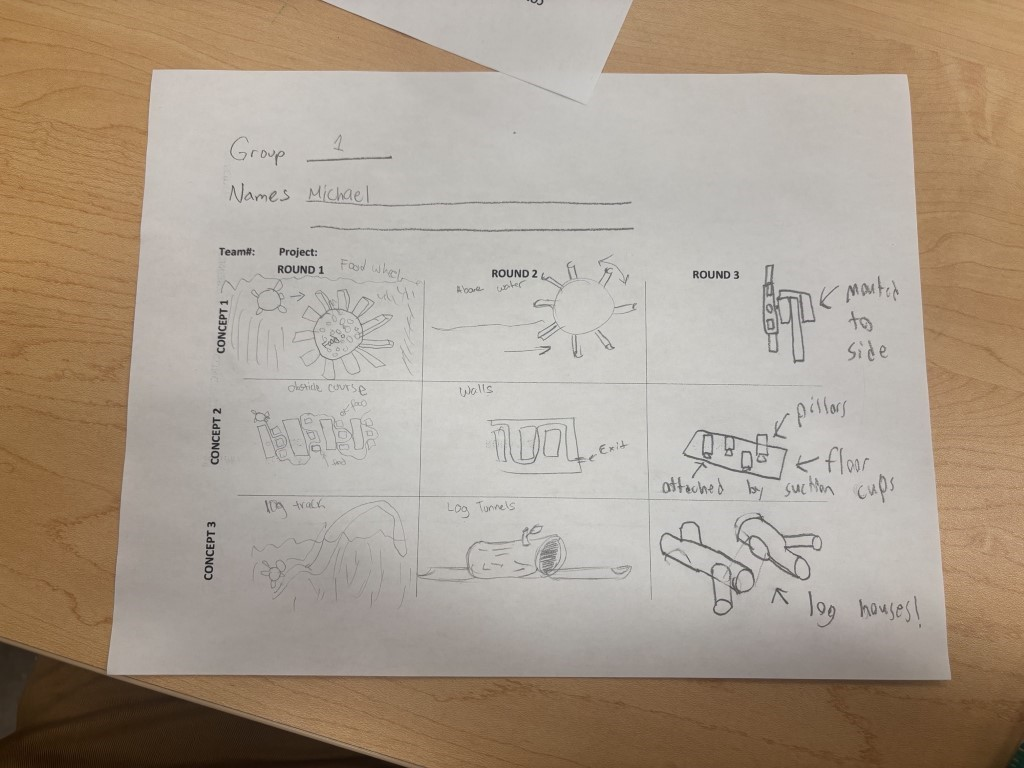 Group 1
Names Michael
Team#: Project:
ROUND 1
ROUND 2
ROUND 3
CONCEPT 1
Food wheel
Food
Above water
mouted
to
side
CONCEPT 2
obsticle course
food
sand
Walls
Exit
pillars
floor
attached by suction cups
CONCEPT 3
log track
Log Tunnels
log houses!